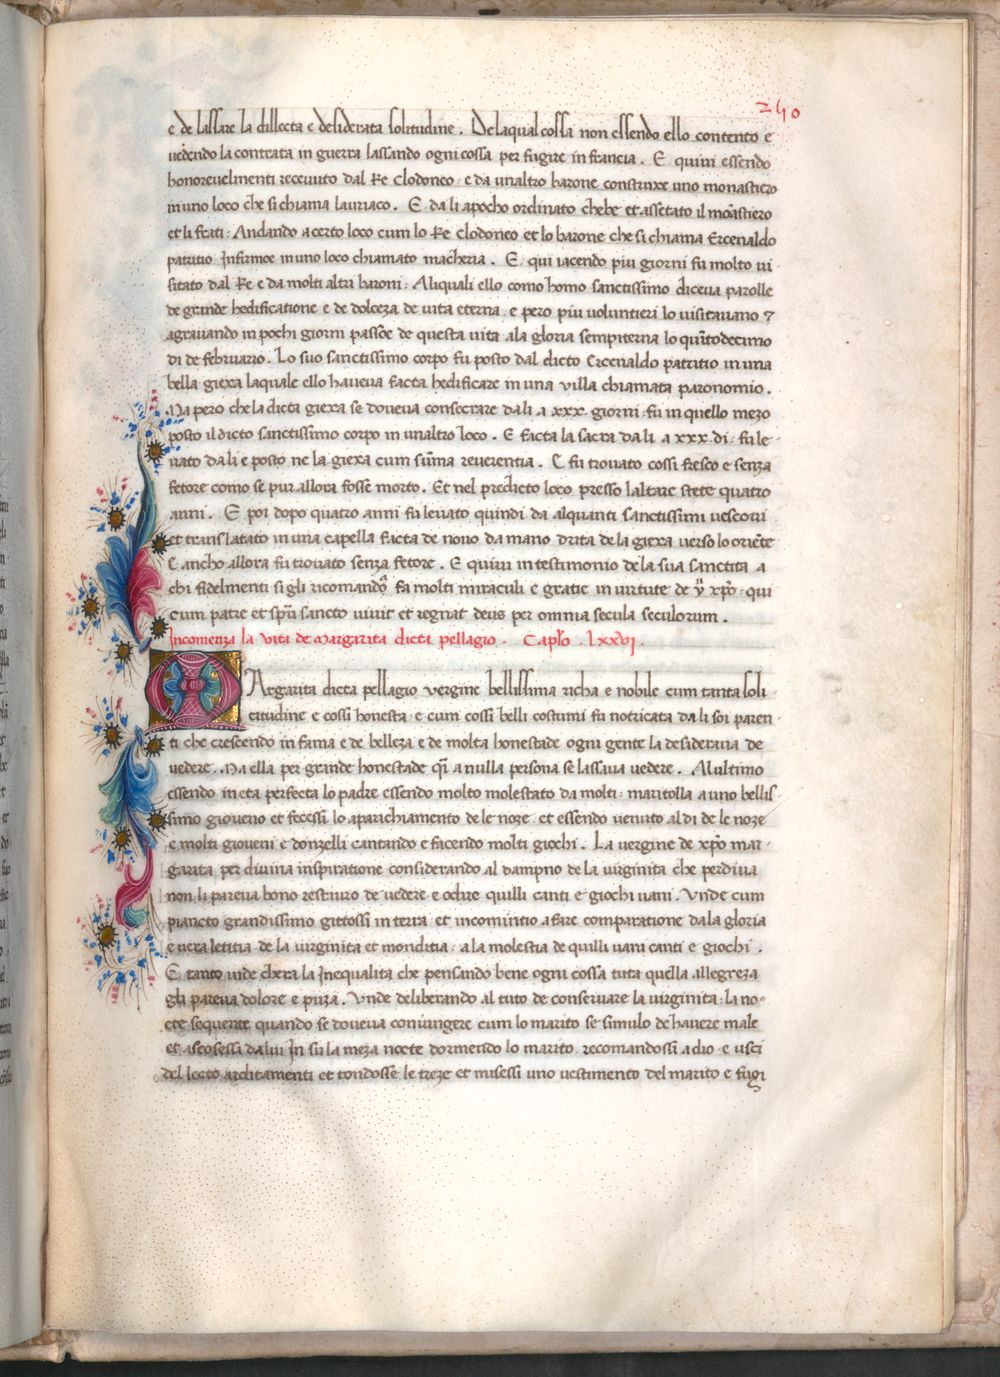 240
e de lassare la dillecta e desiderata solitudine . Delaqual cossa non essendo ello contento e
uedendo la contrata in guerra lassando ogni cossa per fugire in francia . E quiui essendo
honoreuelmenti receuuto dal Re Clodoneo . e da unaltro barone construxe uno monastiero
in uno loco che si chiama lauriaco . E da li apocho ordinato chebe et assetato il moastiero
et li frati : Andando a certo loco cum lo Re Clodoneo et lo barone che si chiama Ercenaldo
patritio Infirmoe in uno loco chiamato macheria . E qui iacendo piu giorni fu molto ui
sitato dal Re e da molti altri baroni : Aliquali ello como homo sanctissimo diceua parolle
de grande hedificatione e de dolceza de uita eterna . e pero piu uoluntieri lo uisitauano 7
agrauando in pochi giorni passoe de questa uita ala gloria sempiterna lo quĩtodecimo
di de februario . Lo suo sanctissimo corpo fu posto dal dicto Ercenaldo patritio in una
bella giexa laquale ello haueua facta hedificare in una uilla chiamata paronomio .
Ma pero che la dicta giexa se doueua consecrare da li a xxx. giorni . fu in quello mezo
posto il dicto sanctissimo corpo in unaltro loco . E facta la sacra da li a xxx. di . fu le
uato da li e posto ne la giexa cum sũma reuerentia . E fu trouato cossi fresco e senza
fetore como se pur allora fosse morto . Et nel predicto loco presso laltare stete quatro
anni . E poi dopo quatro anni fu leuato quindi da alquanti sanctissimi uescoui
et translatato in una capella facta de nouo da mano drita de la giexa uerso lo oriẽte
E ancho allora fu trouato senza fetore . E quiui in testimonio de la sua sanctita a
chi fidelmenti si gli ricomandoª fa molti miraculi e gratie in uirtute de yͧ xp̃o . qui
cum patre et sp̃u sancto uiuit et regnat deus per omnia secula seculorum .
Incomenza la vita de Margarita dicta pellagio . Cap̃lo . Lxxvj .
MArgarita dicta pellagio vergine bellissima richa e nobile cum tanta soli
citudine e cossi honesta . e cum cossi belli costumi fu notricata da li soi paren
ti che crescendo in fama e de belleza e de molta honestade ogni gente la desideraua de
uedere . Ma ella per grande honestade q̃i a nulla persona se lassaua uedere . Al ultimo
essendo in eta perfecta lo padre essendo molto molestato da molti . maritolla a uno bellis
simo giouene et fecessi lo aparichiamento de le noze . et essendo uenuto al di de le noze
e molti gioueni e donzelli cantando e facendo molti giochi . La uergine de xp̃o mar
garita per diuina inspiratione considerando al dampno de la uirginita che perdiua
non li pareua bono restriuo de uedere e odire quilli canti e giochi uani . Vnde cum
piancto grandissimo gittossi in terra et incomintio a fare comparatione dala gloria
e uera letitia de la uirginita et monditia : a la molestia de quilli uani canti e giochi .
E tanto uide chera la Inequalita che pensando bene ogni cossa tuta quella allegreza
gli pareua dolore e puza . Vnde deliberando al tuto de conseruare la uirginita . la no
cte sequente quando se doueua coniungere cum lo marito se simulo de hauere male
et ascosessi da lui In su la meza nocte dormendo lo marito . recomandossi a dio . e usci
del lecto arditamenti et tondosse le treze et missesi uno uestimento del marito e fugi